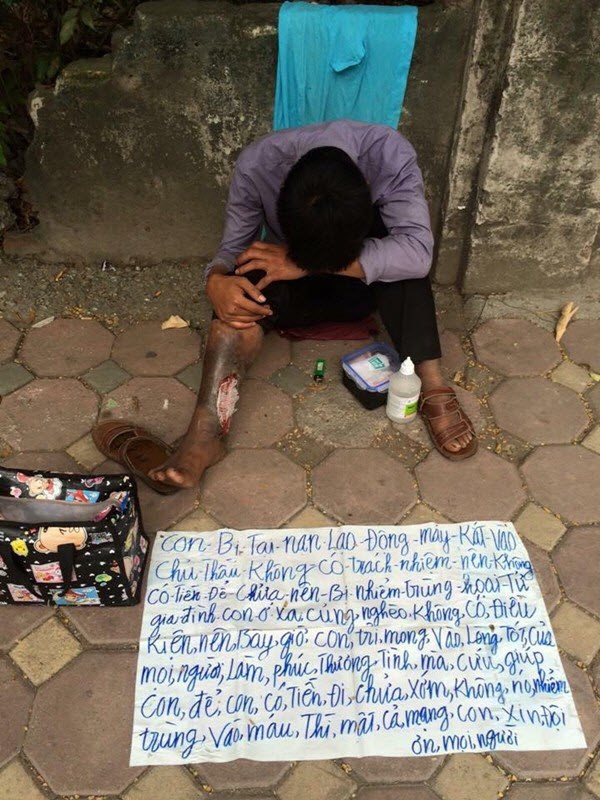 Con Bị Tai nạn Lao Động máy Kắt Vào
Chủ Thầu Không Có trách nhiệm nên Không
Có Tiền Để Chữa nên Bị nhiễm trùng hoại Tử
gia đình con ở xa cũng nghèo, Không, Có, Điều
Kiện, nên, Bay, giờ, Con, trỉ, mong, Vào, Lòng, Tốt, của
mọi, người, Làm, phúc, Thương, Tình, mà, Cứu, giúp,
Con, để, con, có, Tiền, Đi, chửa, Xớm, Không, nó, nhiểm
trùng, Vào, máu, Thì, mất, cả, mạng, Con, Xin, Đội
ơn, mọi, người